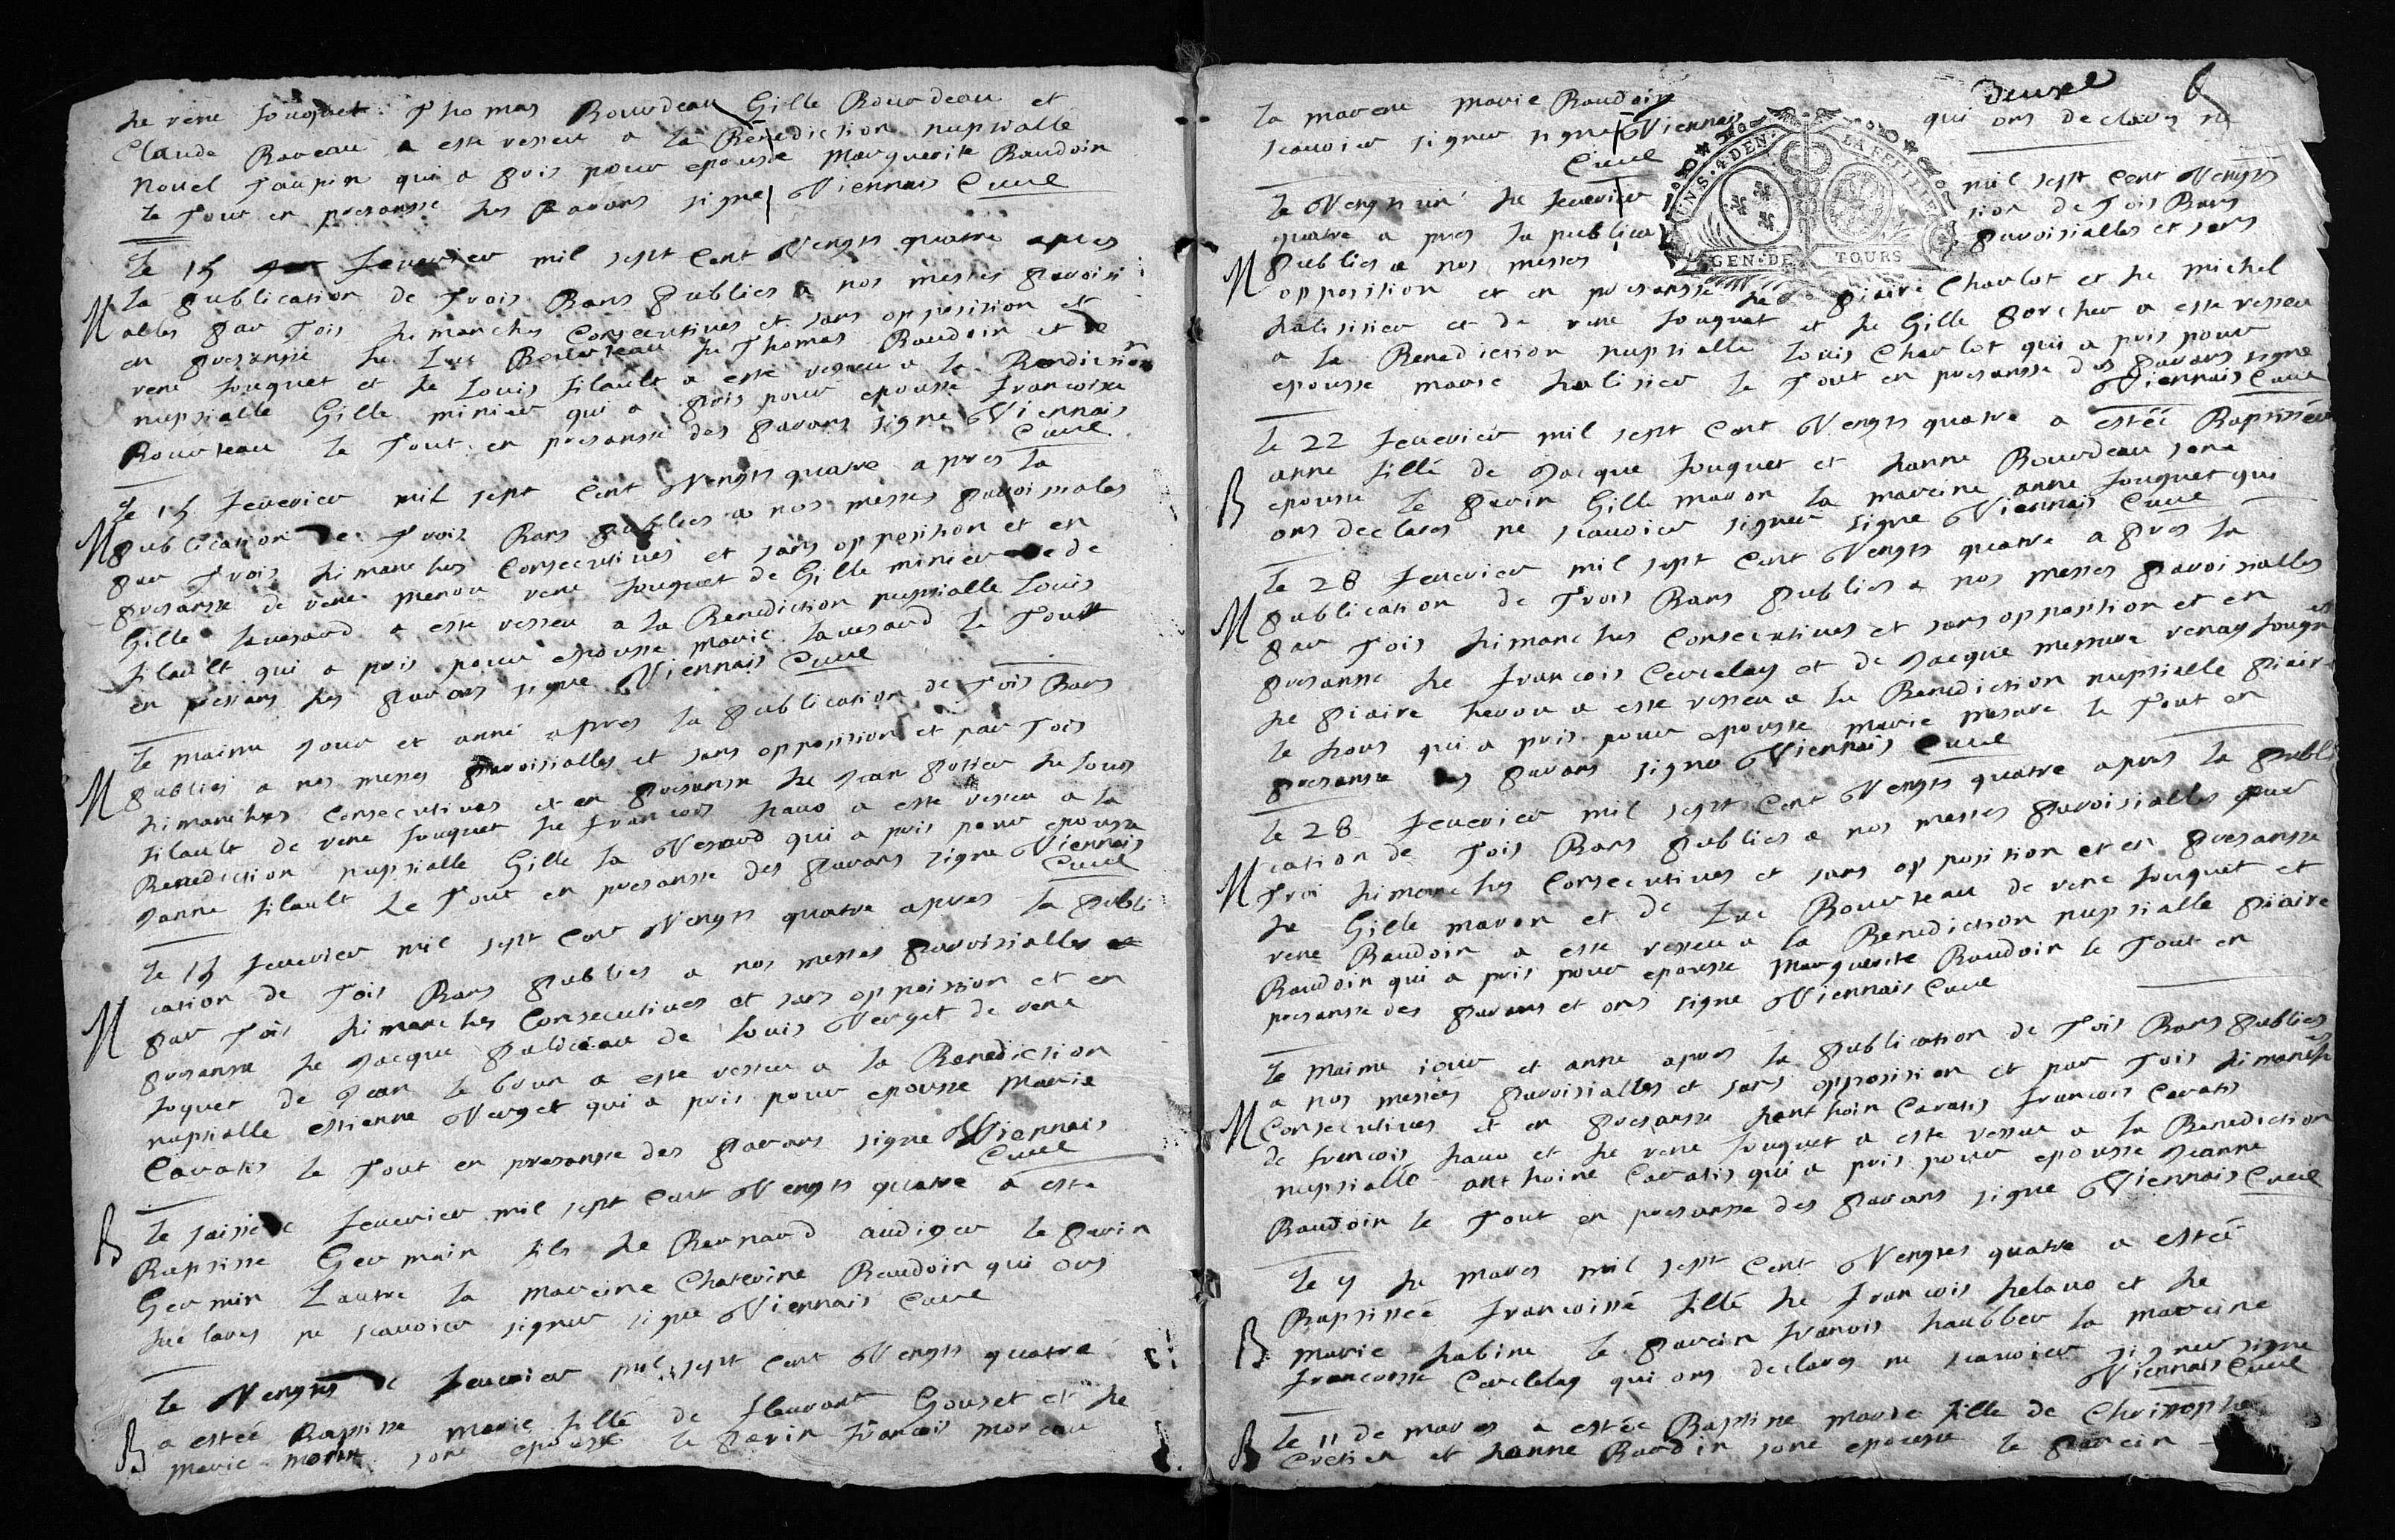 de rene fouquet Thomas Bourdeau Gille Bourdeau et
Claude Baveau a este resseu a la Benediction nupsialle
nouel Taupin qui a pris pour epousse Marguerite Baudoin
le Tout en presansse des Parans signe Viennais Curé
Le 15 feuvrier mil sept Cent Vengts quatre apres
la publication de Trois Bans publies a nos messes paroisi
M alles par Tois dimanches Consecutives et sans opposition et
en presansse de Luc Bourteau de Thomas Baudoin et de
rene fouquet et de Louis filault a este resseu a la Benediction
nupsialle Gille minier qui a pris pour epousse francoise
Bourteau le Tout en presansse des parans signe Viennais
Curé
Le 15 feuvrier mil sept Cent Vengts quatre apres la
M publication de Trois Bans publies a nos messes paroisiales
par Trois dimanches Consecutives et sans opposition et en
presansse de rene menou rene fouquet de Gille minier de
Gille lavesard a este resseu a la Benediction nupsialle Louis
filault qui a pris pour epousse marie lavesard le Tout
en presans des parans signe Viennais Curé
Le maime Jour et anné apres la publication de Tois Bans
M publies a nos messes paroisialles et sans opposition et par Tois
dimanches Consecutives et en presansse de Jean potier de Louis
filault de rene fouquet de francois hauo a este resseu a la
Benediction nupsialle Gille la Vesard qui a pris pour epousse
Janne filault Le Tout en presansse des parans signe Viennais
Curé
Le 15 feuvrier mil sept Cent Vengts quatre apres la publi
cation de Tois Bans publies a nos messes paroisialles
M par Tois dimanches Consecutives et sans opposition et en
presansse de Jacque de Louis Verget de rene
foquet de Jean le brun a este resseu a la Benediction
nupsialle estienne Verget qui a pris pour epousse Marie
Cavatis le Tout en presansse des parans signe Viennais
Curé
Le feuvrier mil sept Cent Vengts quatre a este
B Baptisse Germain fils de Bernard audiger le parin
Germin Lautre la mareine Chaterine Baudoin qui ons
declares ne scauoier signer signe Viennais Curé
Le Vengts feuvrier mil sept Cent Vengts quatre
B a esteé Baptisse marie fillé de fleurant Gouset et de
marie sone epousse le parin francois moreau
la marene marie Baudoin qui ons declares ne
scauoier signer signe Viennais
Curé
deuxe
UNS. 4. DEN. LA FEUILLE
GEN. DE TOURS
Le Vengts un de feuvrier mil sept Cent Vengts
quatre a pres la publication de Tois Bans
M publies a nos messes paroisialles et sans
opposition et en presansse de piaire Charlot et de michel
halisier et de rene fouquet et de Gille porcher a este resseu
a la Benediction nupsialle Louis Charlot qui a pris pour
epousse marie halisier le Tout en presansse des parans signe
Viennais Curé
Le 22 feuvrier mil sept Cent Vengts quatre a esteé Baptisseé
anne fillé de Jacque fouquet et Janne Bourdeau sone
B epousse le parin Gille maron la mareine anne fouquet qui
ons declares ne scauoier signer signe Viennais Curé
Le 28 feuvrier mil sept Cent Vengts quatre a pres la
M publication de Trois Bans publies a nos messes paroisialles
par Tois dimanches Consecutives et sans opposition et en
presansse de francois Cercelay et de Jacque messure renay
de piaire herou a este resseu a la Benediction nupsialle piaire
le hous qui a pris pour epousse marie mesure le Tout en
presansse des parans signe Viennais Curé
Le 28 feuvrier mil sept Cent Vengts quatre apres la publi
M cation de Tois Bans publies a nos messes paroisialles par
Troi dimanches Consecutives et sans opposition et en presansse
de Gille maron et de Luc Bourteau de rene fouquet et
rene Baudoin a este resseu a la Benediction nupsialle piaire
Baudoin qui a pris pour epousse Marguerite Baudoin le Tout en
presansse des parans et ons signe Viennais Curé
Le maime jour et anne apres la publication de Tois Bans publies
a nos messes paroisialles et sans opposition et par Tois dimanches
M Consecutives et en presansse danthoin Cavatis francois Cavatis
de francois hauo et de rene fouquet a este resseu a la Benediction
nupsialle anthoine Cavatis qui a pris pour epousse Jeanne
Baudoin le Tout en presansse des parans signe Viennais Curé
Le 9 de mares mil sept Cent Vengtes quatre a esteé
Baptisseé francoissé fillé de francois helauo et de
B marie habine le parain franois haubber la mareine
francoisse Cercelay qui ons declares ne scauoier signer signe
Viennais Curé
B Le 11 de mares a esteé Baptisse marie fille de Christophe
Cretien et Janne Baudin sone epousse le parain